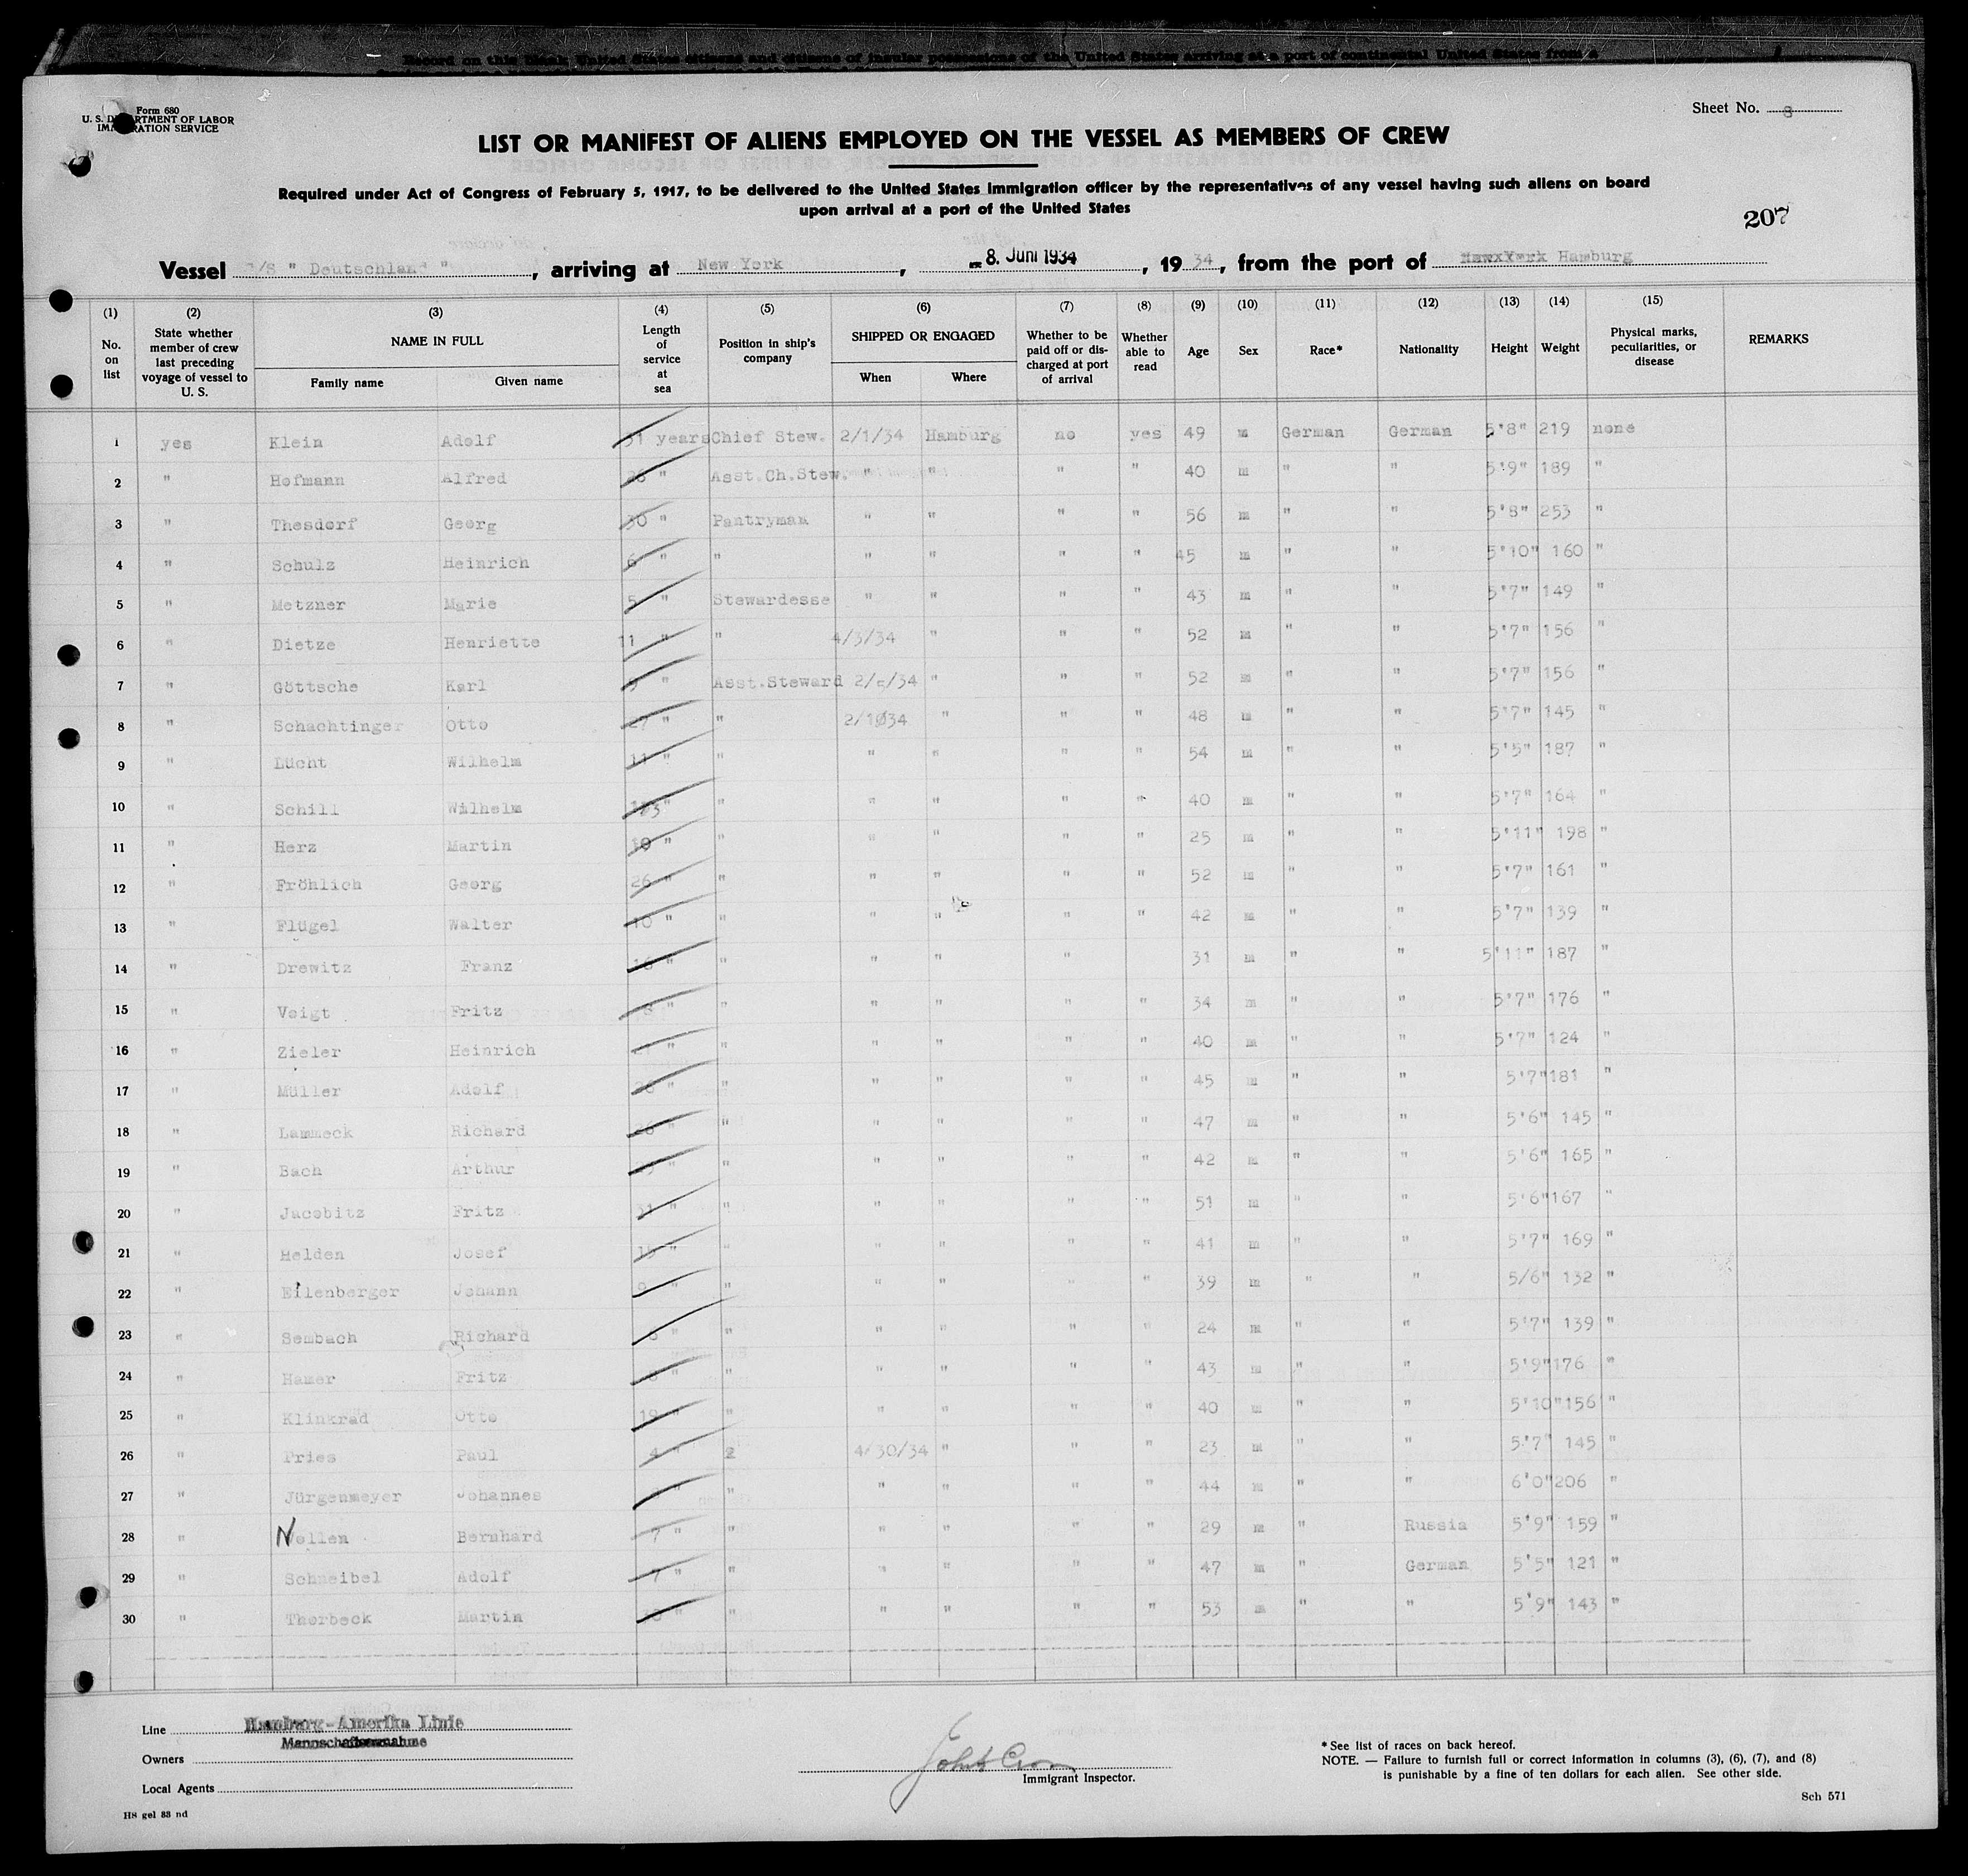 Record on this blank United States citizens and citizens of insular possessions of the United States arriving at a port of continental United States from a
Form 680
U. S. DEPARTMENT OF LABOR
IMMIGRATION SERVICE
Sheet No. 8
LIST OR MANIFEST OF ALIENS EMPLOYED ON THE VESSEL AS MEMBERS OF CREW
Required under Act of Congress of February 5, 1917, to be delivered to the United States immigration officer by the representatives of any vessel having such aliens on board
upon arrival at a port of the United States
207
Vessel /S " Deutschland ", arriving at New York, 8. Juni 1934, 19 34, from the port of Hamburg
(1) (2) (3) (4) (5) (6) (7) (8) (9) (10) (11) (12) (13) (14) (15)
No. on list
State whether member of crew last preceding voyage of vessel to U. S.
NAME IN FULL
Family name Given name
Length of service at sea
Position in ship's company
SHIPPED OR ENGAGED
When Where
Whether to be paid off or discharged at port of arrival
Whether able to read
Age Sex Race* Nationality Height Weight
Physical marks, peculiarities, or disease
REMARKS
1 yes Klein Adolf years Chief Stew. 2/1/34 Hamburg no yes 49 m German German 5'8" 219 none
2 " Hofmann Alfred " Asst.Ch.Stew. " " " " 40 m " " 5'9" 189 "
3 " Thesdorf Georg 30 " Pantryman " " " " 56 m " " 5'8" 253 "
4 " Schulz Heinrich 6 " " " " " " 45 m " " 5'10" 160 "
5 " Metzner Marie 5 " Stewardesse " " " " 43 m " " 5'7" 149 "
6 " Dietze Henriette 11 " " 4/3/34 " " " 52 m " " 5'7" 156 "
7 " Göttsche Karl " Asst.Steward 2/ /34 " " " 52 m " " 5'7" 156 "
8 " Schachtinger Otto 27 " " 2/1034 " " " 48 m " " 5'7" 145 "
9 " Lücht Wilhelm 11 " " " " " " 54 m " " 5'5" 187 "
10 " Schill Wilhelm " " " " " " 40 m " " 5'7" 164 "
11 " Herz Martin 10 " " " " " " 25 m " " 5'11" 198 "
12 " Fröhlich Georg 26 " " " " " " 52 m " " 5'7" 161 "
13 " Flügel Walter 10 " " " " " " 42 m " " 5'7" 139 "
14 " Drewitz Franz " " " " " 31 m " " 5'11" 187 "
15 " Voigt Fritz 8 " " " " " " 34 m " " 5'7" 176 "
16 " Zieler Heinrich " " " " " " 40 m " " 5'7" 124 "
17 " Müller Adolf " " " " " " 45 m " " 5'7" 181 "
18 " Lammeck Richard " " " " " " 47 m " " 5'6" 145 "
19 " Bach Arthur " " " " " " 42 m " " 5'6" 165 "
20 " Jacobitz Fritz " " " " " " 51 m " " 5'6" 167 "
21 " Helden Josef " " " " " " 41 m " " 5'7" 169 "
22 " Eilenberger Johann " " " " " " 39 m " " 5/6" 132 "
23 " Sembach Richard " " " " " " 24 m " " 5'7" 139 "
24 " Hamer Fritz " " " " " " 43 m " " 5'9" 176 "
25 " Klinkrad Otto 19 " " " " " " 40 m " " 5'10" 156 "
26 " Fries Paul 4 " 2 4/30/34 " " " 23 m " " 5'7" 145 "
27 " Jürgenmeyer Johannes " " " " " " 44 m " " 6'0" 206 "
28 " Nellen Bernhard 7 " " " " " " 29 m " Russia 5'9" 159 "
29 " Schneibel Adolf 7 " " " " " " 47 m " German 5'5" 121 "
30 " Thorbeck Martin " " " " " " 53 m " " 5'9" 143 "
Line Hamburg-Amerika Linie
Owners
Local Agents
H8 gel 83 nd
Immigrant Inspector.
* See list of races on back hereof.
NOTE. — Failure to furnish full or correct information in columns (3), (6), (7), and (8)
is punishable by a fine of ten dollars for each alien. See other side.
Sch 571